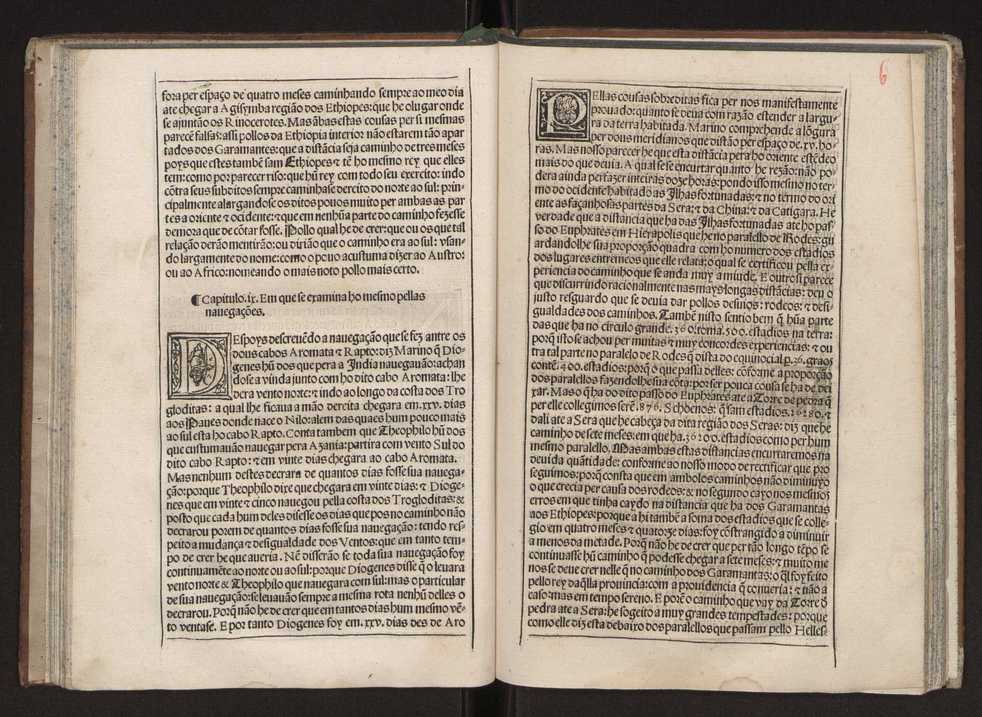 fora per espaço de quatro meses caminhando sempre ao meo dia
ate chegar a Agisymba região dos Ethiopes: que he o lugar onde
se ajuntão os Rinocerotes. Mas ãbas estas cousas per si mesmas
parecẽ falsas: assi pollos da Ethiopia interior não estarem tão apar
tados dos Garamantes: que a distãcia seja caminho de tres meses
poys que estes tambẽ sam Ethiopes ⁊ tẽ ho mesmo rey que elles
tem: como por parecer riso: que hũ rey com todo seu exercito: indo
cõtra seus subditos sempre caminhase dereito do norte ao sul: prin-
cipalmente alargandose os ditos pouos muito per ambas as par
tes a oriente ⁊ ocidente: ⁊ que em nenhũa parte do caminho fezesse
demora que de cõtar fosse. Pollo qual he de crer: que ou os que tal
relação derão mentirão: ou dirião que o caminho era ao sul: vsan-
do largamente do nome: como o pouo acustuma dizer ao Austro:
ou ao Africo: nomeando o mais noto pollo mais certo.
¶ Capitulo. ix. Em que se examina ho mesmo pellas
nauegações.
DEspoys descreuẽdo a nauegação que se fez antre os
dous cabos Aromata ⁊ Rapto: diz Marino q̃ Dio-
genes hũ dos que pera a India nauegauão: achan
dose a vinda junto com ho dito cabo Aromata: lhe
dera vento norte: ⁊ indo ao longo da costa dos Tro
gloditas: a qual lhe ficaua a mão dereita chegara em. xxv. dias
aos Paues donde nace o Nilo: alem das quaes hum pouco mais
ao sul esta ho cabo Rapto. Conta tambem que Theophilo hũ dos
que custumauão nauegar pera Azania: partira com vento Sul do
dito cabo Rapto: ⁊ em vinte dias chegara ao cabo Aromata.
Mas nenhum destes decrara de quantos dias fosse sua nauega-
ção: porque Theophilo dixe que chegara em vinte dias: ⁊ Dioge-
nes que em vinte ⁊ cinco nauegou pella costa dos Trogloditas: &
posto que cada hum deles disesse os dias que pos no caminho não
decrarou porem de quantos dias fosse sua nauegação: tendo res-
peito a mudança ⁊ desigualdade dos Ventos: que em tanto tem-
po de crer he que aueria. Nẽ disserão se toda sua nauegação foy
continuamẽte ao norte ou ao sul: porque Diogenes disse q̃ o leuara
vento norte & Theophilo que nauegara com sul: mas o particular
de sua nauegação: se leuauão sempre a mesma rota nenhũ delles o
decrarou. Porq̃ não he de crer que em tantos dias hum mesmo vẽ-
to ventase. E por tanto Diogenes foy em. xxv. dias des de Aro
6
PEllas cousas sobreditas fica per nos manifestamente
prouado: quanto se deua com razão estender a largu-
ra da terra habitada. Marino comprehende a lõgura
per dous meridianos que distão per espaço de. xv. ho-
ras. Mas nosso parecer he que esta distãcia pera ho oriente estẽdeo
mais do que deuia. A qual se se encurtar quanto he rezão: não po-
dera ainda perfazer inteiras doze horas: pondo isso mesmo no ter-
mo do ocidente habitado as Ilhas fortunadas: ⁊ no termo do ori
ente as façanhosas partes da Sera: ⁊ da China: ⁊ da Catigara. He
verdade que a distancia que ha das Ilhas fortunadas ate ho pas-
so do Euphrates em Hierapolis que he no parallelo de Rodes: gu
ardandolhe sua proporção quadra com ho numero dos estadios
dos lugares entremeos que elle relata: o qual se certificou pella ex-
periencia do caminho que se anda muy a miude. E outro si parece
que discurrindo racionalmente nas mays longas distãcias: deu o
justo resguardo que se deuia dar pollos desuios: rodeos: ⁊ desi-
gualdades dos caminhos. Tambẽ nisto sentio bem q̃ hũa parte
das que ha no circulo grande. 360. toma. 500. estadios na terra:
porq̃ isto se achou per muitas ⁊ muy concordes experiencias: ⁊ ou
tra tal parte no paralelo de Rodes q̃ dista do equinocial p. 36. graos
contẽ. 400. estadios: porq̃ o que passa delles: cõforme a proporção
dos parallelos fazendolhe sua cõta: por ser pouca cousa se ha de dei
xar. Mas o q̃ ha do dito passo do Euphrates ate a Torre de pedra q̃
per elle collegimos serẽ. 876. Schoenos: q̃ sam estadios. 26280. ⁊
dali ate a Sera que he cabeça da dita região dos Seras: diz que he
caminho de sete meses: em que ha. 36200. estadios como per hum
mesmo parallelo. Mas ambas estas distancias encurtaremos na
deuida quãtidade: conforme ao nosso modo de rectificar que pro
seguimos: porq̃ consta que em ambolos caminhos não diminuyo
o que crecia per causa dos rodeos: & no segundo cayo nos mesmos
erros em que tinha caydo na distancia que ha dos Garamantas
aos Ethiopes: porque a hi tambẽ a soma dos estadios que se colle-
gio em quatro meses ⁊ quatorze dias: foy cõstrangido a diminuir
a menos da metade. Porq̃ não he de crer que per tão longo tẽpo se
continuasse hũ caminho q̃ podesse chegar a sete meses: ⁊ muito me
nos se deue crer nelle q̃ no caminho dos Garamantas: o q̃l foy feito
pello rey daq̃lla prouincia: com a prouidencia q̃ conueria: ⁊ não a
caso: mas em tempo sereno. E porẽ o caminho que vay da Torre d̃
pedra ate a Sera: he sogeito a muy grandes tempestades: porque
como elle diz esta debaixo dos parallelos que passam pello Helles-